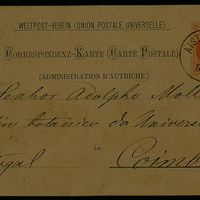 WELTPOST-VEREIN (UNION POSTALE UNIVERSELLE).
CORRESPONDENZ-KARTE (CARTE POSTALE)
(ADMINISTRATION D'AUTRICHE.)
Senhor Adolpho Moll
botanico da Univers
in
Coimb